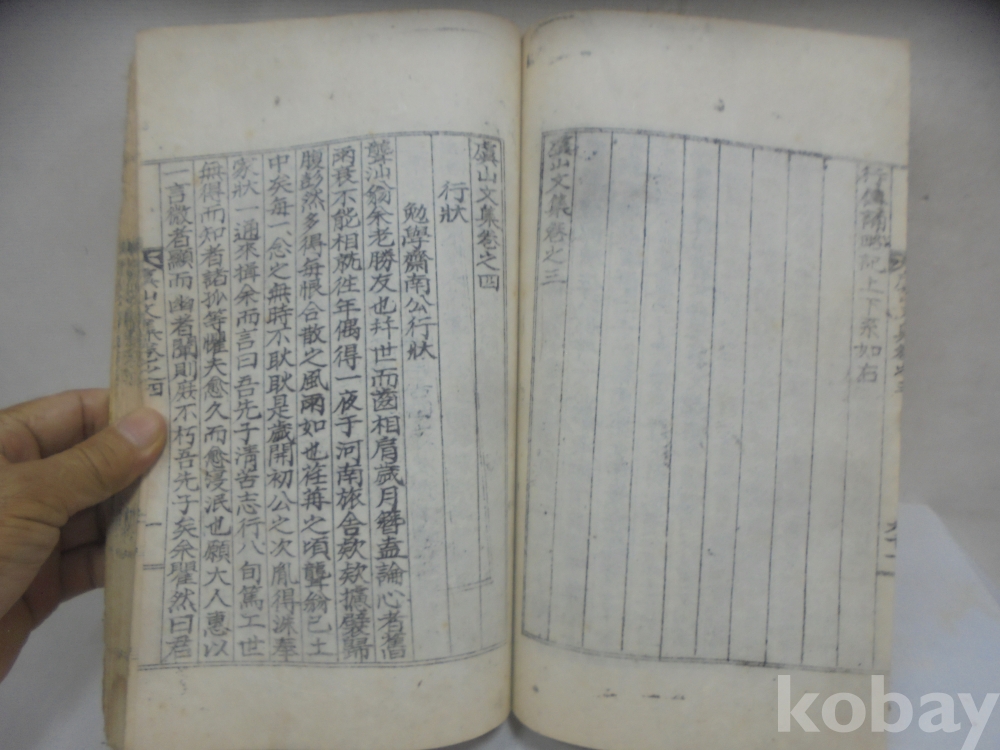 行傳陽 記上下系如右
虞山文集卷之三
虞山文集卷之四
行狀
勉學齋南公行狀
聾汕翁余老勝友也幷世而齒相肩歲月簪盍論心者舊
兩衰不能相就往年偶得一夜于河南旅舍欬欬擴襞歸
腹彭然多得每恨合散之風雨如也荏苒之頃聾翁已土
中矣每一念之無時不耿耿是歲開初公之次胤得洙奉
家狀一通來搆余而言曰吾先子清苦志行八旬篤工世
無得而知者諸孤等懼夫愈久而愈浸泯也願大人惠以
一言微者顯而幽者闡則庶不朽吾先子矣余瞿然曰君
虞山文集卷之四
一
kobay